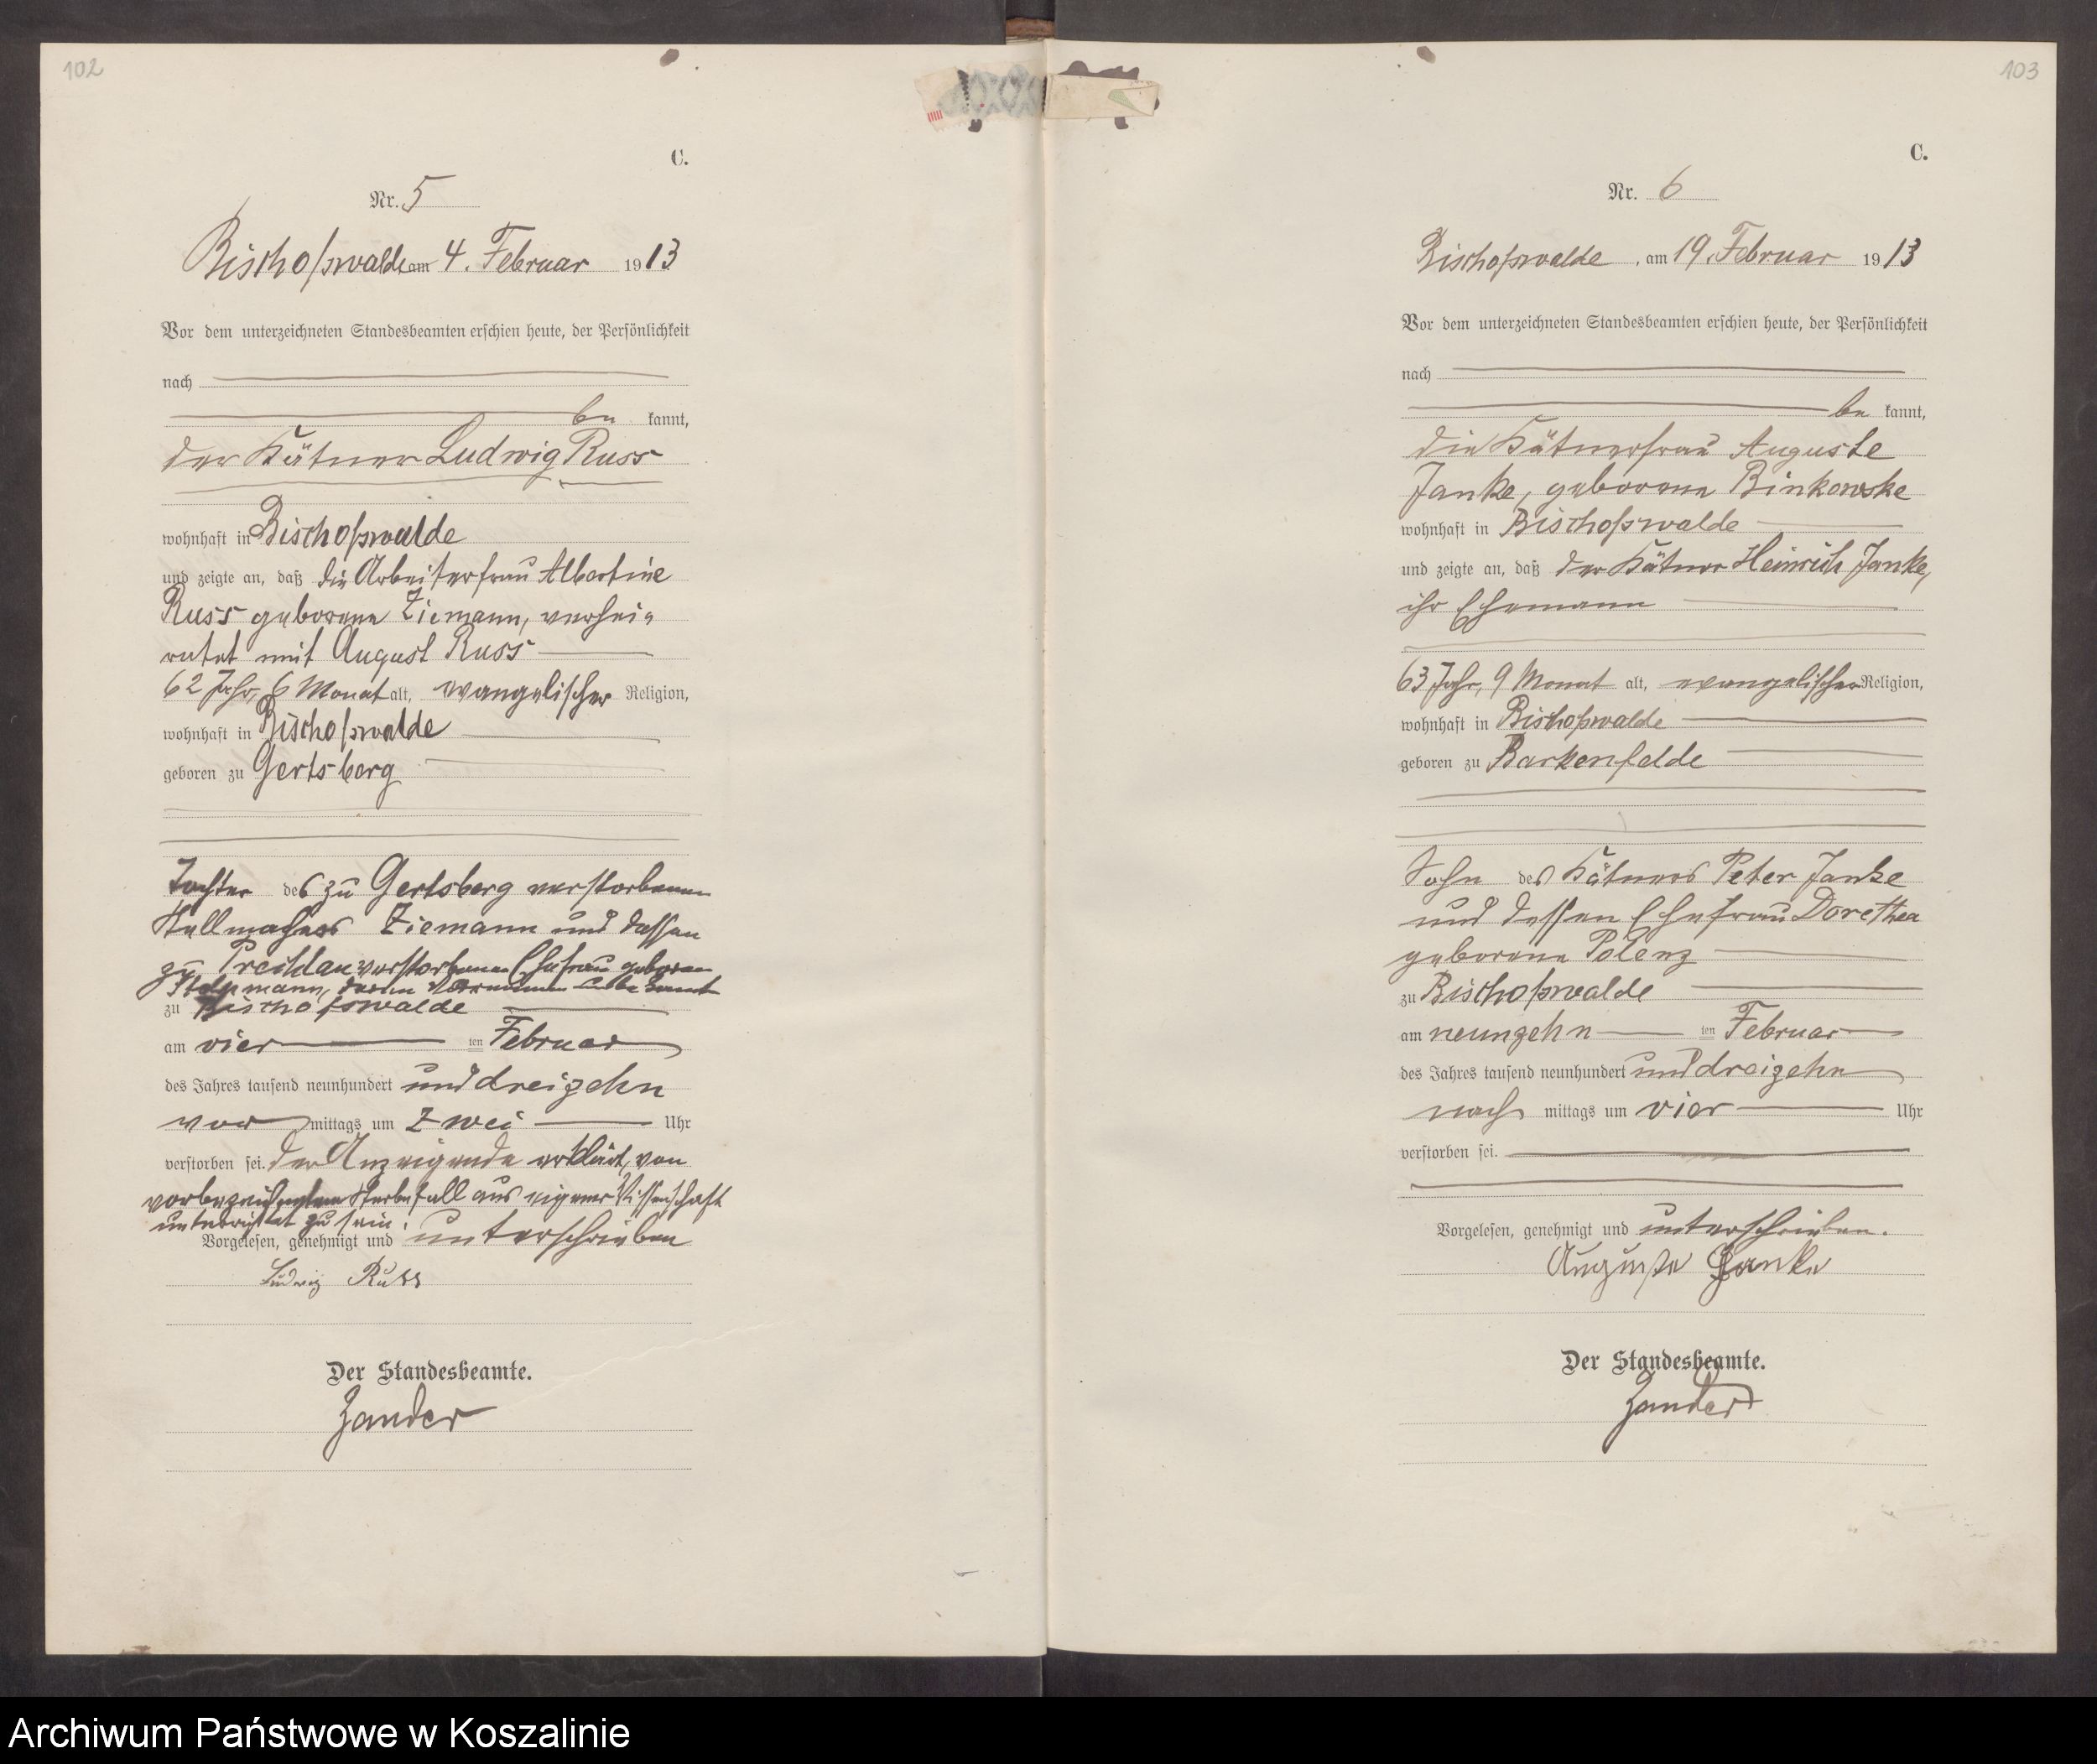 102
C.
Nr. 5
Bischofswalde am 4. Februar 1913
Vor dem unterzeichneten Standesbeamten erschien heute, der Persönlichkeit
nach
be kannt,
der Kätner Ludwig Russ
wohnhaft in Bischofswalde
und zeigte an, daß die Arbeiterfrau Albertine
Russ geborene Ziemann, verhei-
ratet mit August Russ
62 Jahr, 6 Monat alt, evangelischer Religion,
wohnhaft in Bischofswalde
geboren zu Gertsberg
Tochter des zu Gertsberg verstorbenen
Stellmachers Ziemann und dessen
zu verstorbenen Ehefrau geboren
deren Vornamen unbekannt
zu Bischofswalde
am vier ten Februar
des Jahres tausend neunhundert und dreizehn
vor mittags um zwei Uhr
verstorben sei. Der Anzeigende erklärt, von
vorbezeichnetem Sterbefall aus eigener Wissenschaft
unterrichtet zu sein.
Vorgelesen, genehmigt und unterschrieben
Ludwig Russ
Der Standesbeamte.
Zander
103
C.
Nr. 6
Bischofswalde, am 19. Februar 1913
Vor dem unterzeichneten Standesbeamten erschien heute, der Persönlichkeit
nach
be kannt,
die Kätnerfrau Auguste
Janke, geborene Binkowske
wohnhaft in Bischofswalde
und zeigte an, daß der Kätner Heinrich Janke,
ihr Ehemann
63 Jahr, 9 Monat alt, evangelischer Religion,
wohnhaft in Bischofswalde
geboren zu Barkenfelde
Sohn des Kätners Peter Janke
und dessen Ehefrau Dorethea
geborene Polenz
zu Bischofswalde
am neunzehn ten Februar
des Jahres tausend neunhundert und dreizehn
nach mittags um vier Uhr
verstorben sei.
Vorgelesen, genehmigt und unterschrieben.
Auguste Janke
Der Standesbeamte.
Zander
Archiwum Państwowe w Koszalinie